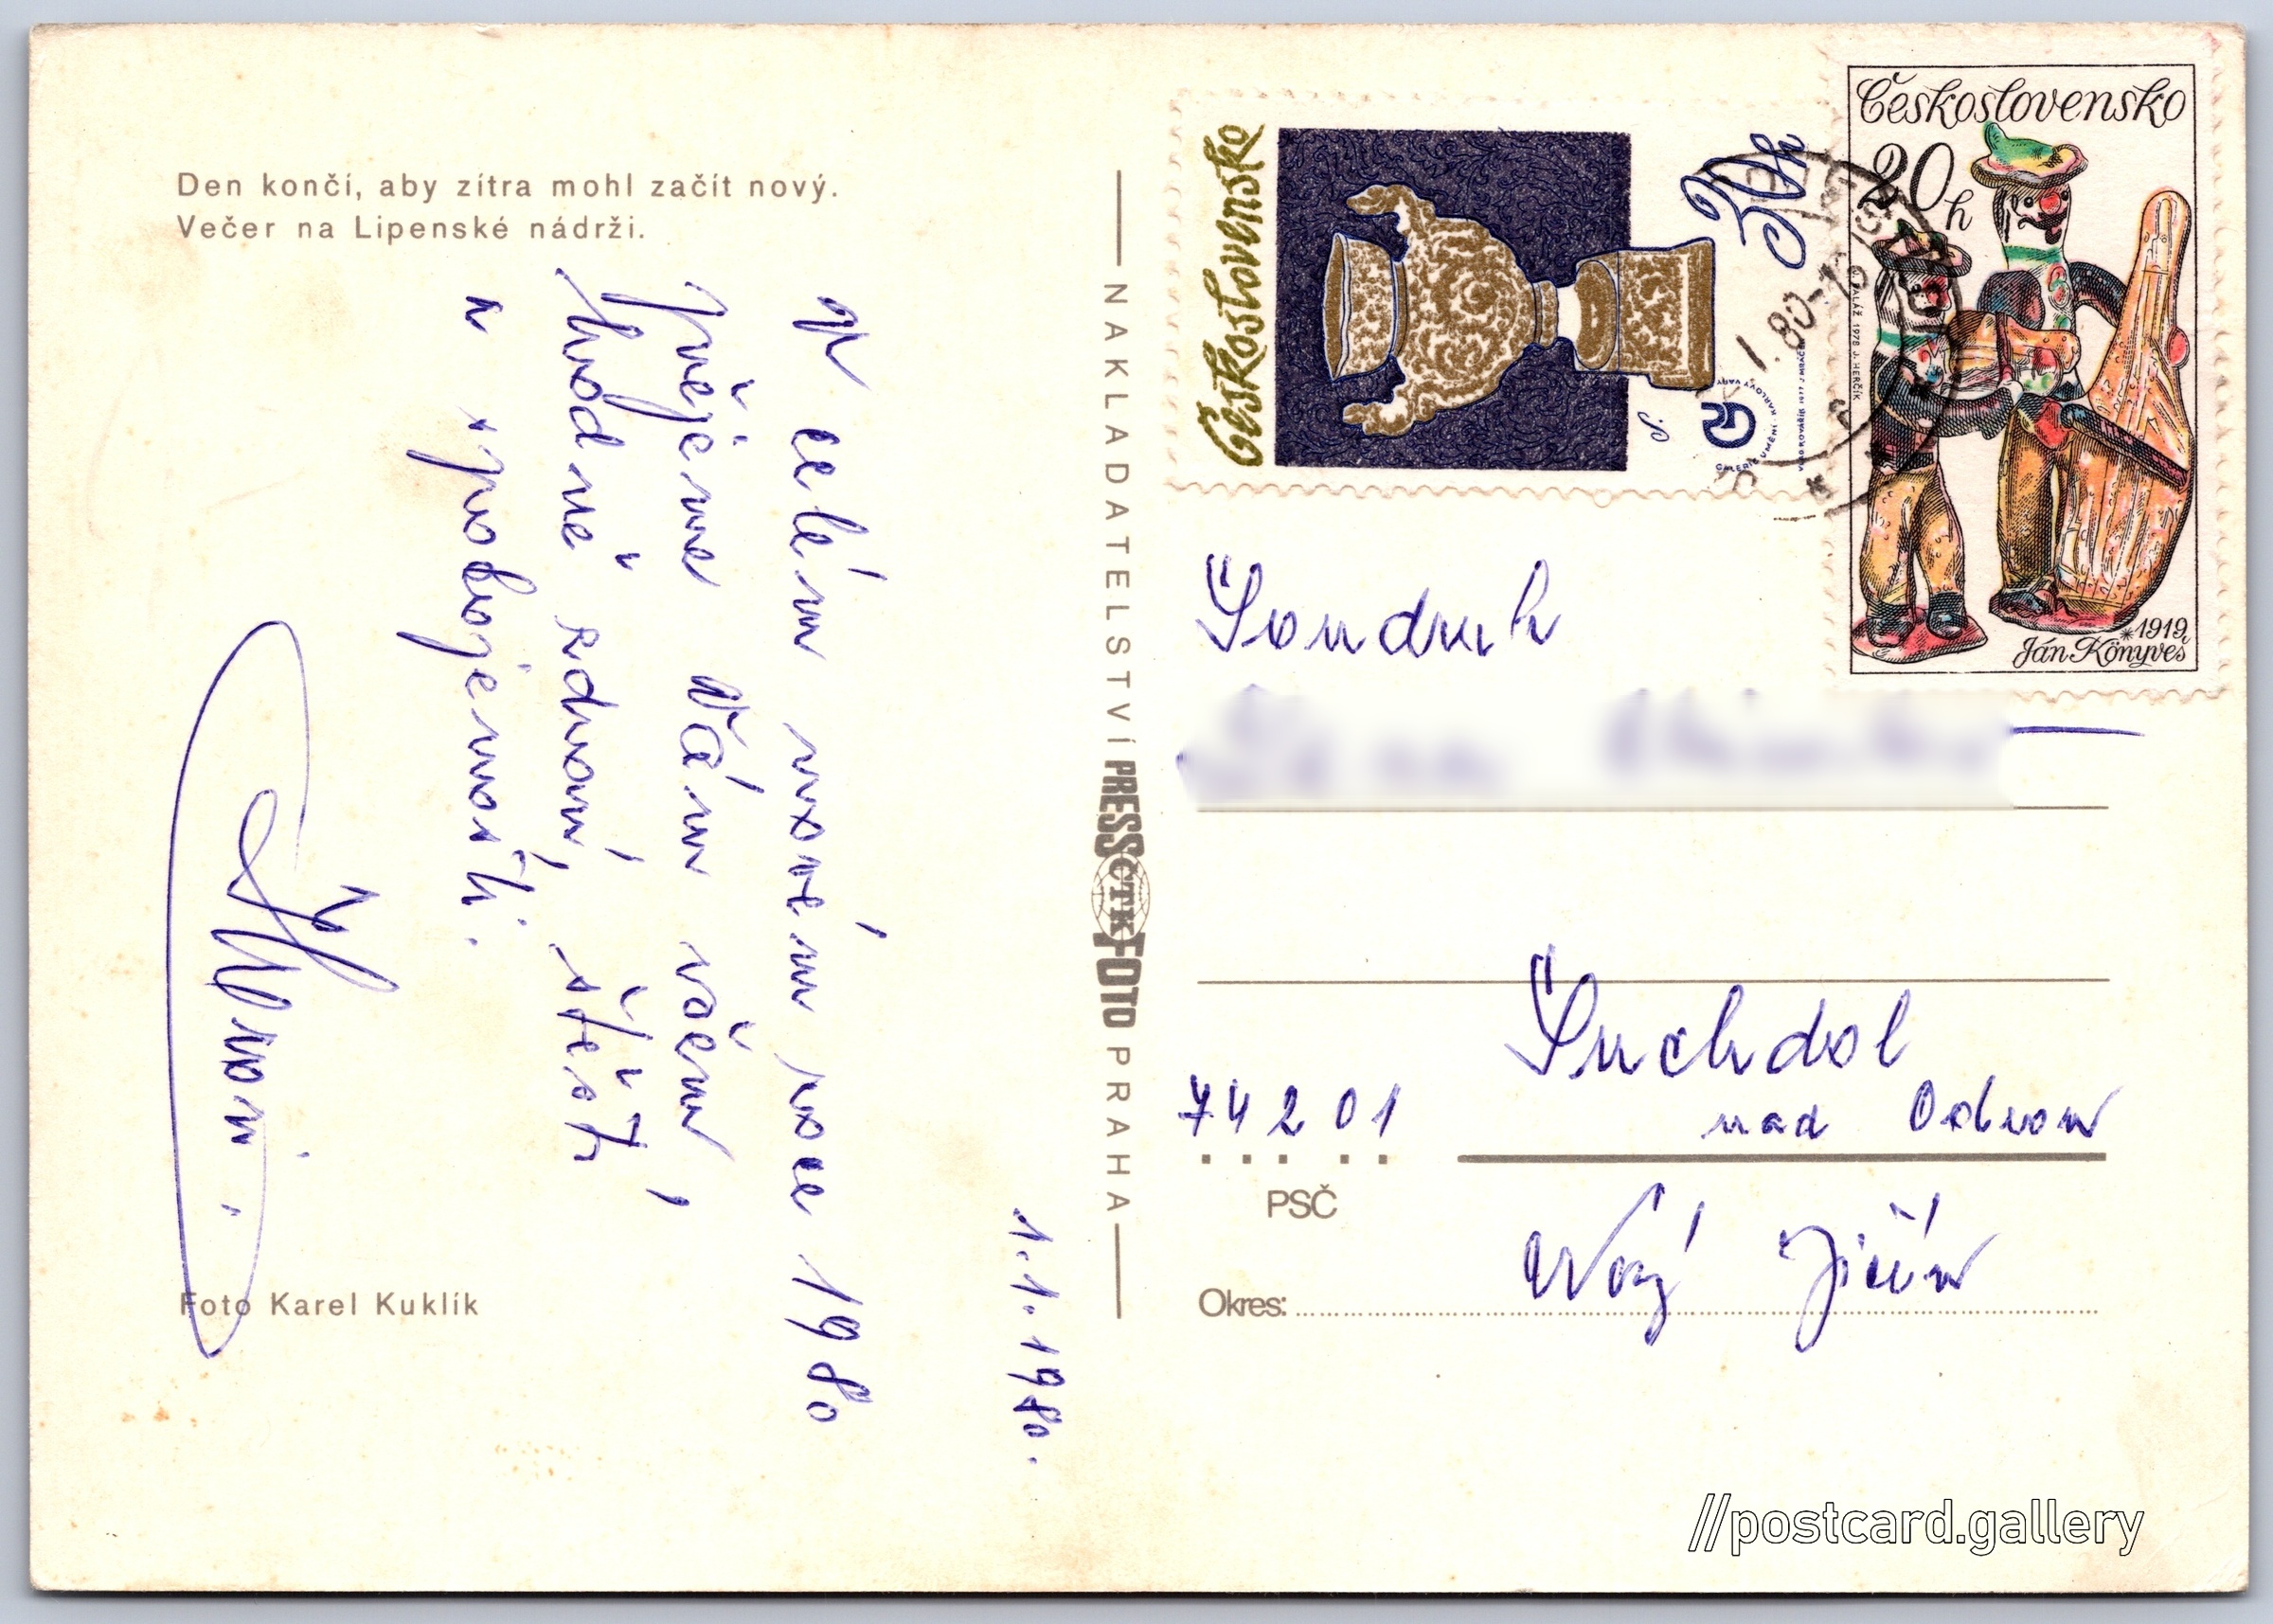 Den končí, aby zítra mohl začít nový.
Večer na Lipenské nádrži.
V celém novém roce 1980
přejeme Vám všem
hodně zdraví, štěstí
a spokojenosti.
1.1.1980.
Foto Karel Kuklík
NAKLADATELSTVÍ PRESSFOTO PRAHA
ČTK
Československo
30h
GALERIE UMĚNÍ KARLOVY VARY
Československo
20h
*1919
Ján Könyveš
1.80-18
Soudruh
Suchdol
74201 nad Odrou
PSČ
Nový Jičín
Okres:
//postcard.gallery